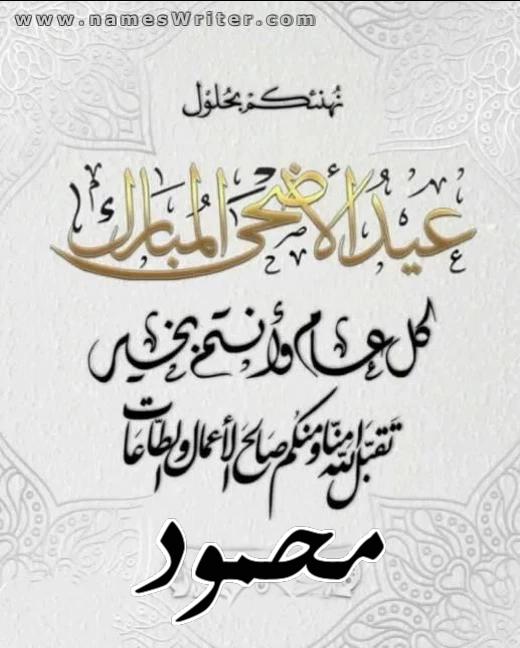 www.namesWriter.com
نهنئكم بحلول
عيد الأضحى المبارك
كل عام وأنتم بخير
تقبل الله منا ومنكم صالح الأعمال والطاعات
محمود